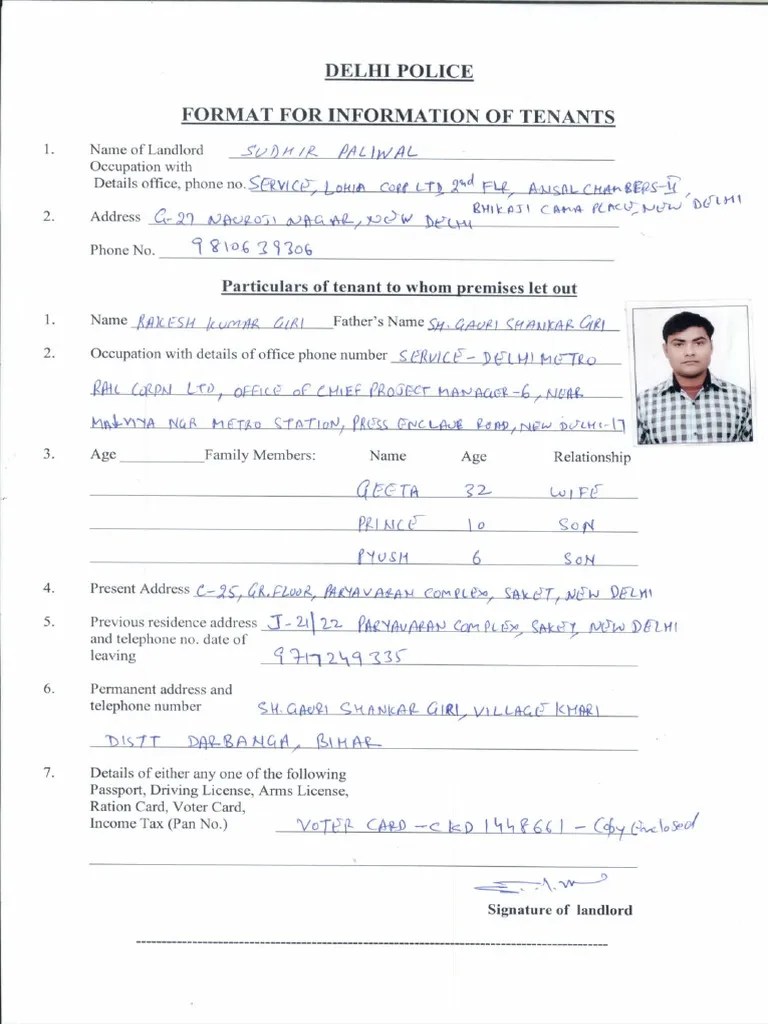 DELHI POLICE
FORMAT FOR INFORMATION OF TENANTS
1. Name of Landlord SUDHIR PALIWAL
Occupation with
Details office, phone no. SERVICE, LOHIA CORP LTD, 2nd FLR, ANSAL CHAMBERS-II,
BHIKAJI CAMA PLACE, NEW DELHI
2. Address G-27 NAUROJI NAGAR, NEW DELHI
Phone No. 9810639306
Particulars of tenant to whom premises let out
1. Name RAKESH KUMAR GIRI Father's Name SH. GAURI SHANKAR GIRI
2. Occupation with details of office phone number SERVICE - DELHI METRO
RAIL CORPN LTD, OFFICE OF CHIEF PROJECT MANAGER-6, NEAR
MALVIYA NGR METRO STATION, PRESS ENCLAVE ROAD, NEW DELHI-17
3. Age Family Members: Name Age Relationship
GEETA 32 WIFE
PRINCE 10 SON
PYUSH 6 SON
4. Present Address C-25, GR. FLOOR, PARYAVARAN COMPLEX, SAKET, NEW DELHI
5. Previous residence address J-21/22 PARYAVARAN COMPLEX, SAKET, NEW DELHI
and telephone no. date of
leaving 9717249335
6. Permanent address and
telephone number SH. GAURI SHANKAR GIRI, VILLAGE KHARI
DISTT DARBANGA, BIHAR
7. Details of either any one of the following
Passport, Driving License, Arms License,
Ration Card, Voter Card,
Income Tax (Pan No.) VOTER CARD - CKD 1448661 - Copy Enclosed
Signature of landlord